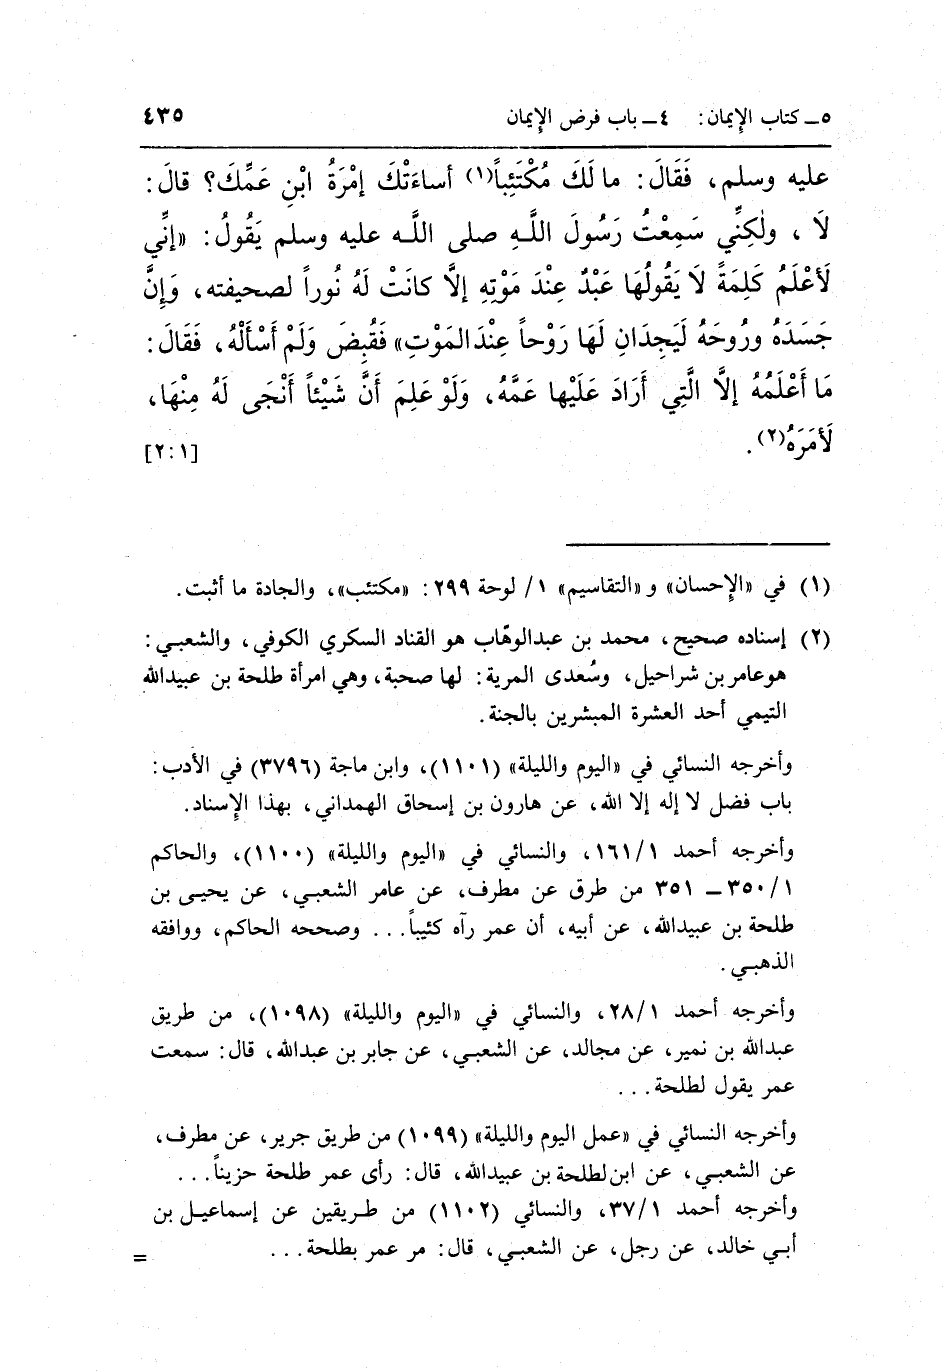 ٥ـ كتاب الإيمان: ٤ـ باب فرض الإيمان ٤٣٥
عليه وسلم، فَقَالَ: ما لَكَ مُكْتَئِباً(١) أساءَتْكَ إمْرَةُ ابْنِ عَمِّكَ؟ قالَ:
لَا ، ولٰكِنِّي سَمِعْتُ رَسُولَ اللَّهِ صلى اللَّه عليه وسلم يَقُولُ: «إنِّي
لَأعْلَمُ كَلِمَةً لَا يَقُولُهَا عَبْدٌ عِنْدَ مَوْتِهِ إلَّا كانَتْ لَهُ نُوراً لصحيفته، وَإِنَّ
جَسَدَهُ ورُوحَهُ لَيَجِدَانِ لَهَا رَوْحاً عِنْدَ المَوْتِ» فَقُبِضَ وَلَمْ أَسْأَلْهُ، فَقَالَ:
مَا أَعْلَمُهُ إلَّا الَّتِي أَرَادَ عَلَيْها عَمَّهُ، وَلَوْ عَلِمَ أَنَّ شَيْئاً أَنْجَى لَهُ مِنْهَا،
لَأمَرَهُ(٢). [٢:١]
(١) في «الإحسان» و«التقاسيم» ١/ لوحة ٢٩٩: «مكتئب»، والجادة ما أثبت.
(٢) إسناده صحيح، محمد بن عبدالوهّاب هو القناد السكري الكوفي، والشعبي:
هو عامر بن شراحيل، وسُعدى المرية: لها صحبة، وهي امرأة طلحة بن عبيدالله
التيمي أحد العشرة المبشرين بالجنة.
وأخرجه النسائي في «اليوم والليلة» (١١٠١)، وابن ماجة (٣٧٩٦) في الأدب:
باب فضل لا إله إلا الله، عن هارون بن إسحاق الهمداني، بهذا الإسناد.
وأخرجه أحمد ١٦١/١، والنسائي في «اليوم والليلة» (١١٠٠)، والحاكم
٣٥٠/١ ـ ٣٥١ من طرق عن مطرف، عن عامر الشعبي، عن يحيى بن
طلحة بن عبيدالله، عن أبيه، أن عمر رآه كئيباً... وصححه الحاكم، ووافقه
الذهبي.
وأخرجه أحمد ٢٨/١، والنسائي في «اليوم والليلة» (١٠٩٨)، من طريق
عبدالله بن نمير، عن مجالد، عن الشعبي، عن جابر بن عبدالله، قال: سمعت
عمر يقول لطلحة...
وأخرجه النسائي في «عمل اليوم والليلة» (١٠٩٩) من طريق جرير، عن مطرف،
عن الشعبي، عن ابن لطلحة بن عبيدالله، قال: رأى عمر طلحة حزيناً...
وأخرجه أحمد ٣٧/١، والنسائي (١١٠٢) من طريقين عن إسماعيل بن
أبي خالد، عن رجل، عن الشعبي، قال: مر عمر بطلحة... =